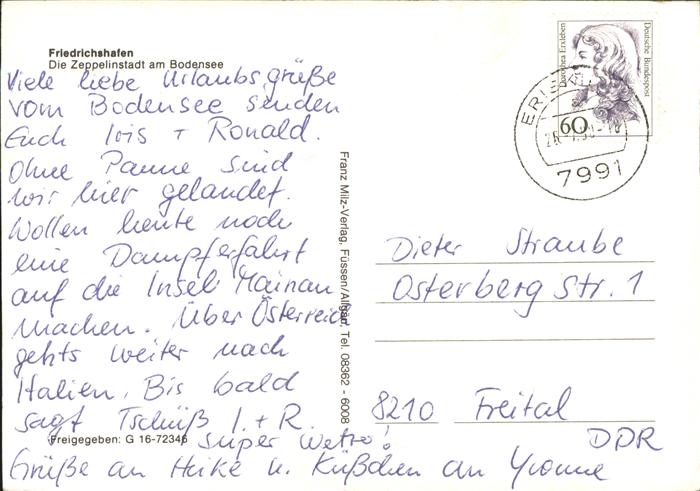 Friedrichshafen
Die Zeppelinstadt am Bodensee
Viele liebe Urlaubsgrüße
vom Bodensee senden
Euch Iris + Ronald.
Ohne Panne sind
wir hier gelandet.
Wollen heute noch
eine Dampferfahrt
auf die Insel Mainau
machen. Über Österreich
gehts weiter nach
Italien. Bis bald
sagt Tschüß I. + R.
Freigegeben: G 16-72346
super Wetter!
Grüße an Heike u. Küßchen an Yvonne
Franz Milz-Verlag, Füssen/Allgäu, Tel. 08362 - 6008
Dorothea Erxleben
Deutsche Bundespost
60
7991
Dieter Straube
Osterberg Str. 1
8210 Freital
DDR